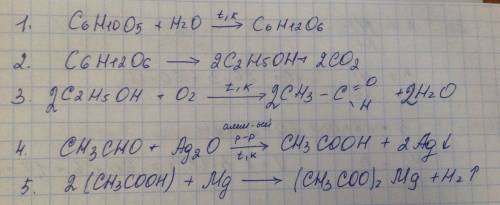 1. C6H10O5 + H2O t,k → C6H12O6
2. C6H12O6 → 2C2H5OH + 2CO2
3. 2C2H5OH + O2 t,k → 2CH3 - C =O H + 2H2O
4. CH3CHO + Ag2O р-р t,k → CH3COOH + 2Ag↓
5. 2(CH3COOH) + Mg → (CH3COO)2 Mg + H2↑